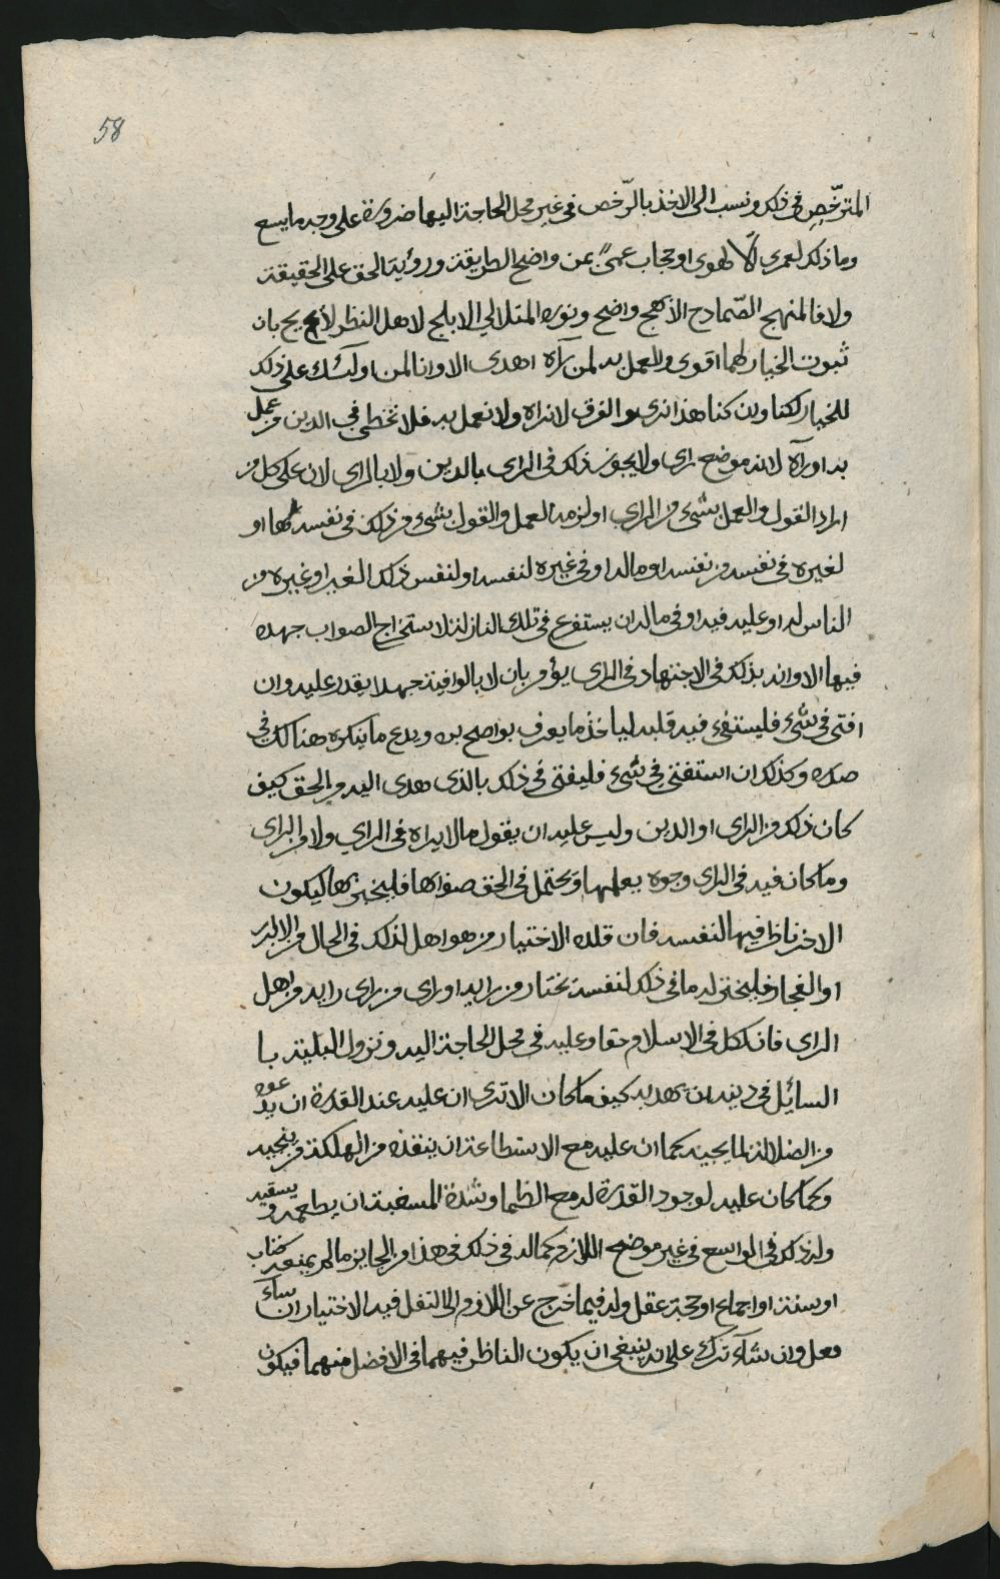 58
المترخّص في ذلك ونسب الى الاخذ بالرّخص في غير محل الحاجة اليها ضرورة على وجه ما يسع
وما ذلك لعمري الّا لهوى او حجاب عمىً عن واضح الطريقة ورؤية الحق على الحقيقة
ولا فالمنهج الصّمادح الأبهج واضح ونوره المتلالي الابلج لاهل النظر لأيح بان
ثبوت الخيار لهما اقوى والعمل به لمن رآه اهدى الا وانا لمن اولئك على ذلك
للخيار لكنا وان كنا هذا نرى والفرق لا نراه ولا نعمل به فلا نخطي في الدين من عمل
به او رآه لانه موضع راى ولا يجوز ذلك في الراى بالدين ولا بالراى لان على كل من
اراد القول والعمل بشيء من الراي او لزمه العمل والقول بشيء من ذلك في نفسه لها او
لغيره في نفسه من نفسه او ماله او في غيره لنفسه او لنفس ذلك الغير او غيره من
الناس له او عليه فيه او في ماله ان يستفرغ في تلك النازلة لاستخراج الصواب جهده
فيها الا وانه بذلك في الاجتهاد في الراى يؤمر بان لا بالوافية جهد لا يقدر عليه وان
افتى في شيء فليستفي فيه قلبه لياخذ ما يعرف بواضح بره ويدع ما ينكره هنالك في
صدره وكذلك ان استفتى في شيء فليفتي في ذلك بالذي هدى اليه من الحق كيف
كان ذلك من الراى او الدين وليس عليه ان يقول ما لا يراه في الراي ولا من الراى
وما كان فيه في الراى وجوه يعلمها ويحتمل في الحق صوابها فليخبره بها ليكون
الاخر ناظرا فيها لنفسه فان قلده الاختيار من هو اهل لذلك في الحال من الابرار
او الفجار فليختر له ما في ذلك لنفسه يختار من رايه او راى من راى رايه من اهل
الراى فان لكل في الاسلام حقا وعليه في محل الحاجة اليه ونزول البلية با
السائل في دينه ان يهديه كيف ما كان الا ترى ان عليه عند القدرة ان يدعوه
من الضلالة لما يجيه كما ان عليه مع الاستطاعة ان ينقذه من الهلكة فينجيه
وكما كان عليه لوجود القدرة له مع الظما وشدة المسغبة ان يطعمه ويسقيه
وله ذلك في الواسع في غير موضع اللازم كما له في ذلك في هذا من الجايز ما لم يمنعه كتاب
او سنة او اجماع او حجة عقل وله فيما خرج عن اللازم الى النفل فيه الاختيار ان شاء
فعل وان شآء ترك على انه ينبغي ان يكون الناظر فيهما في الافضل منهما فيكون